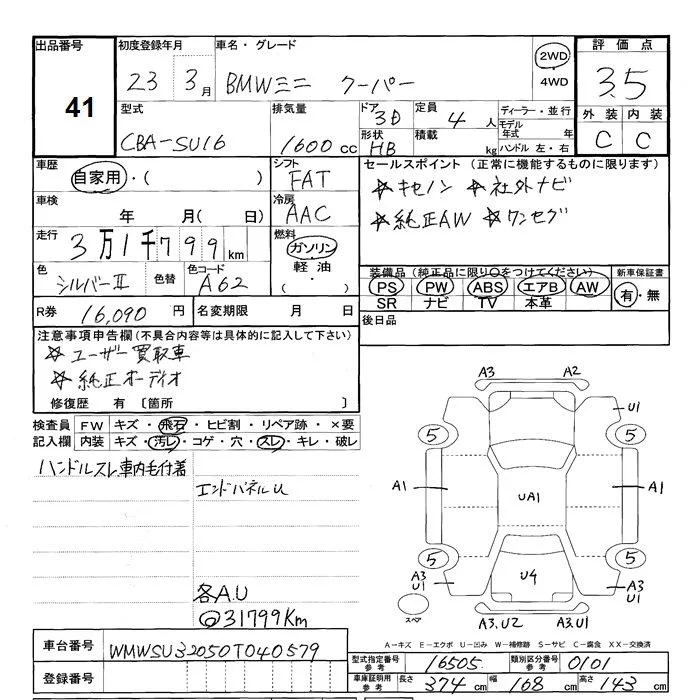 出品番号
41
初度登録年月
23 3月
車名・グレード
BMWミニ クーパー
2WD
4WD
評価点
3.5
外装 内装
C C
型式
CBA-SU16
排気量
1600 cc
ドア 3D
形状 HB
定員 4 人
積載 kg
ディーラー・並行
モデル年式 年
ハンドル 左・右
車歴
自家用・( )
シフト
FAT
車検
年 月( 日)
冷房
AAC
走行
3万1千799 km
燃料
ガソリン
軽油
・( )
色
シルバーII
色替
色コード
A62
セールスポイント (正常に機能するものに限ります)
☆キセノン ☆社外ナビ
☆純正AW ☆ワンセグ
装備品 (純正品に限り○をつけてください)
PS PW ABS エアB AW
SR ナビ TV 本革
新車保証書
有・無
R券 16,090 円
名変期限 月 日
後日品
注意事項申告欄 (不具合内容等は具体的に記入して下さい)
☆ユーザー買取車
☆純正オーディオ
修復歴 有 〔箇所 〕
検査員記入欄
FW キズ・飛石・ヒビ割・リペア跡・×要
内装 キズ・汚レ・コゲ・穴・スレ・キレ・破レ
ハンドルスレ 車内毛付着
エンドパネルU
各A.U
@31799Km
A3 A2
U1
5 5
A1 UA1 A1
5 5
A3
U1
U4
A3
U1
スペア
A3.U2 A3.U1
A-キズ E-エクボ U-凹み W-補修跡 S-サビ C-腐食 XX-交換済
車台番号 WMWSU32050T040579
登録番号
型式指定番号 参考 16505
類別区分番号 参考 0101
車庫証明用 参考 長さ 374 cm 幅 168 cm 高さ 143 cm